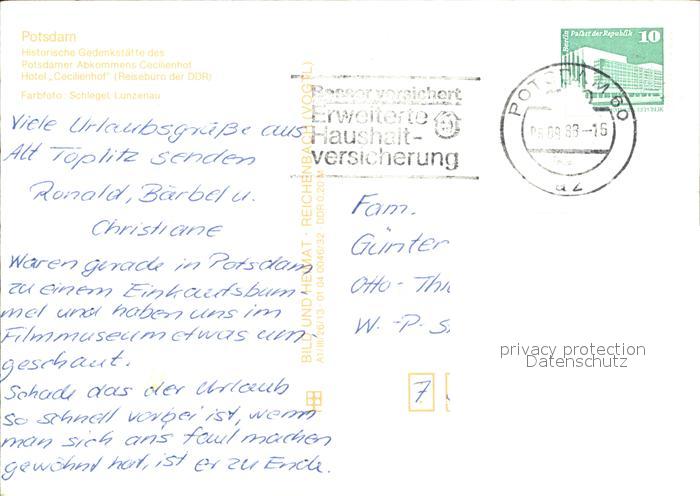 Potsdam
Historische Gedenkstätte des
Potsdamer Abkommens Cecilienhof
Hotel „Cecilienhof" (Reisebüro der DDR)
Farbfoto: Schlegel, Lunzenau
Viele Urlaubsgrüße aus
Alt Töplitz senden
Ronald, Bärbel u.
Christiane
Waren gerade in Potsdam
zu einem Einkaufsbum-
mel und haben uns im
Filmmuseum etwas um-
geschaut.
Schade das der Urlaub
so schnell vorbei ist, wenn
man sich ans faul machen
gewöhnt hat, ist er zu Ende.
BILD UND HEIMAT · REICHENBACH (VOGTL)
A1/III/26/13 01 04 0046/32 DDR 0,20 M
Besser versichert
Erweiterte
Haushalt-
versicherung
POTSDAM 60
-16
az
Berlin Palast der Republik 10
DDR
Fam.
Günter
Otto-
W.-P.-
7
privacy protection
Datenschutz